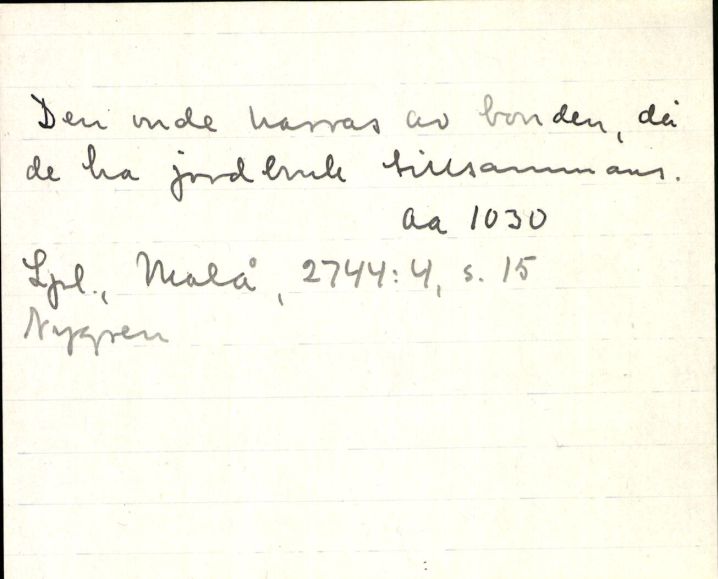 Den onde narras av bonden, då
de ha jordbruk tillsammans.
Aa 1030
Lpl., Malå, 2744:4, s. 15
Nygren